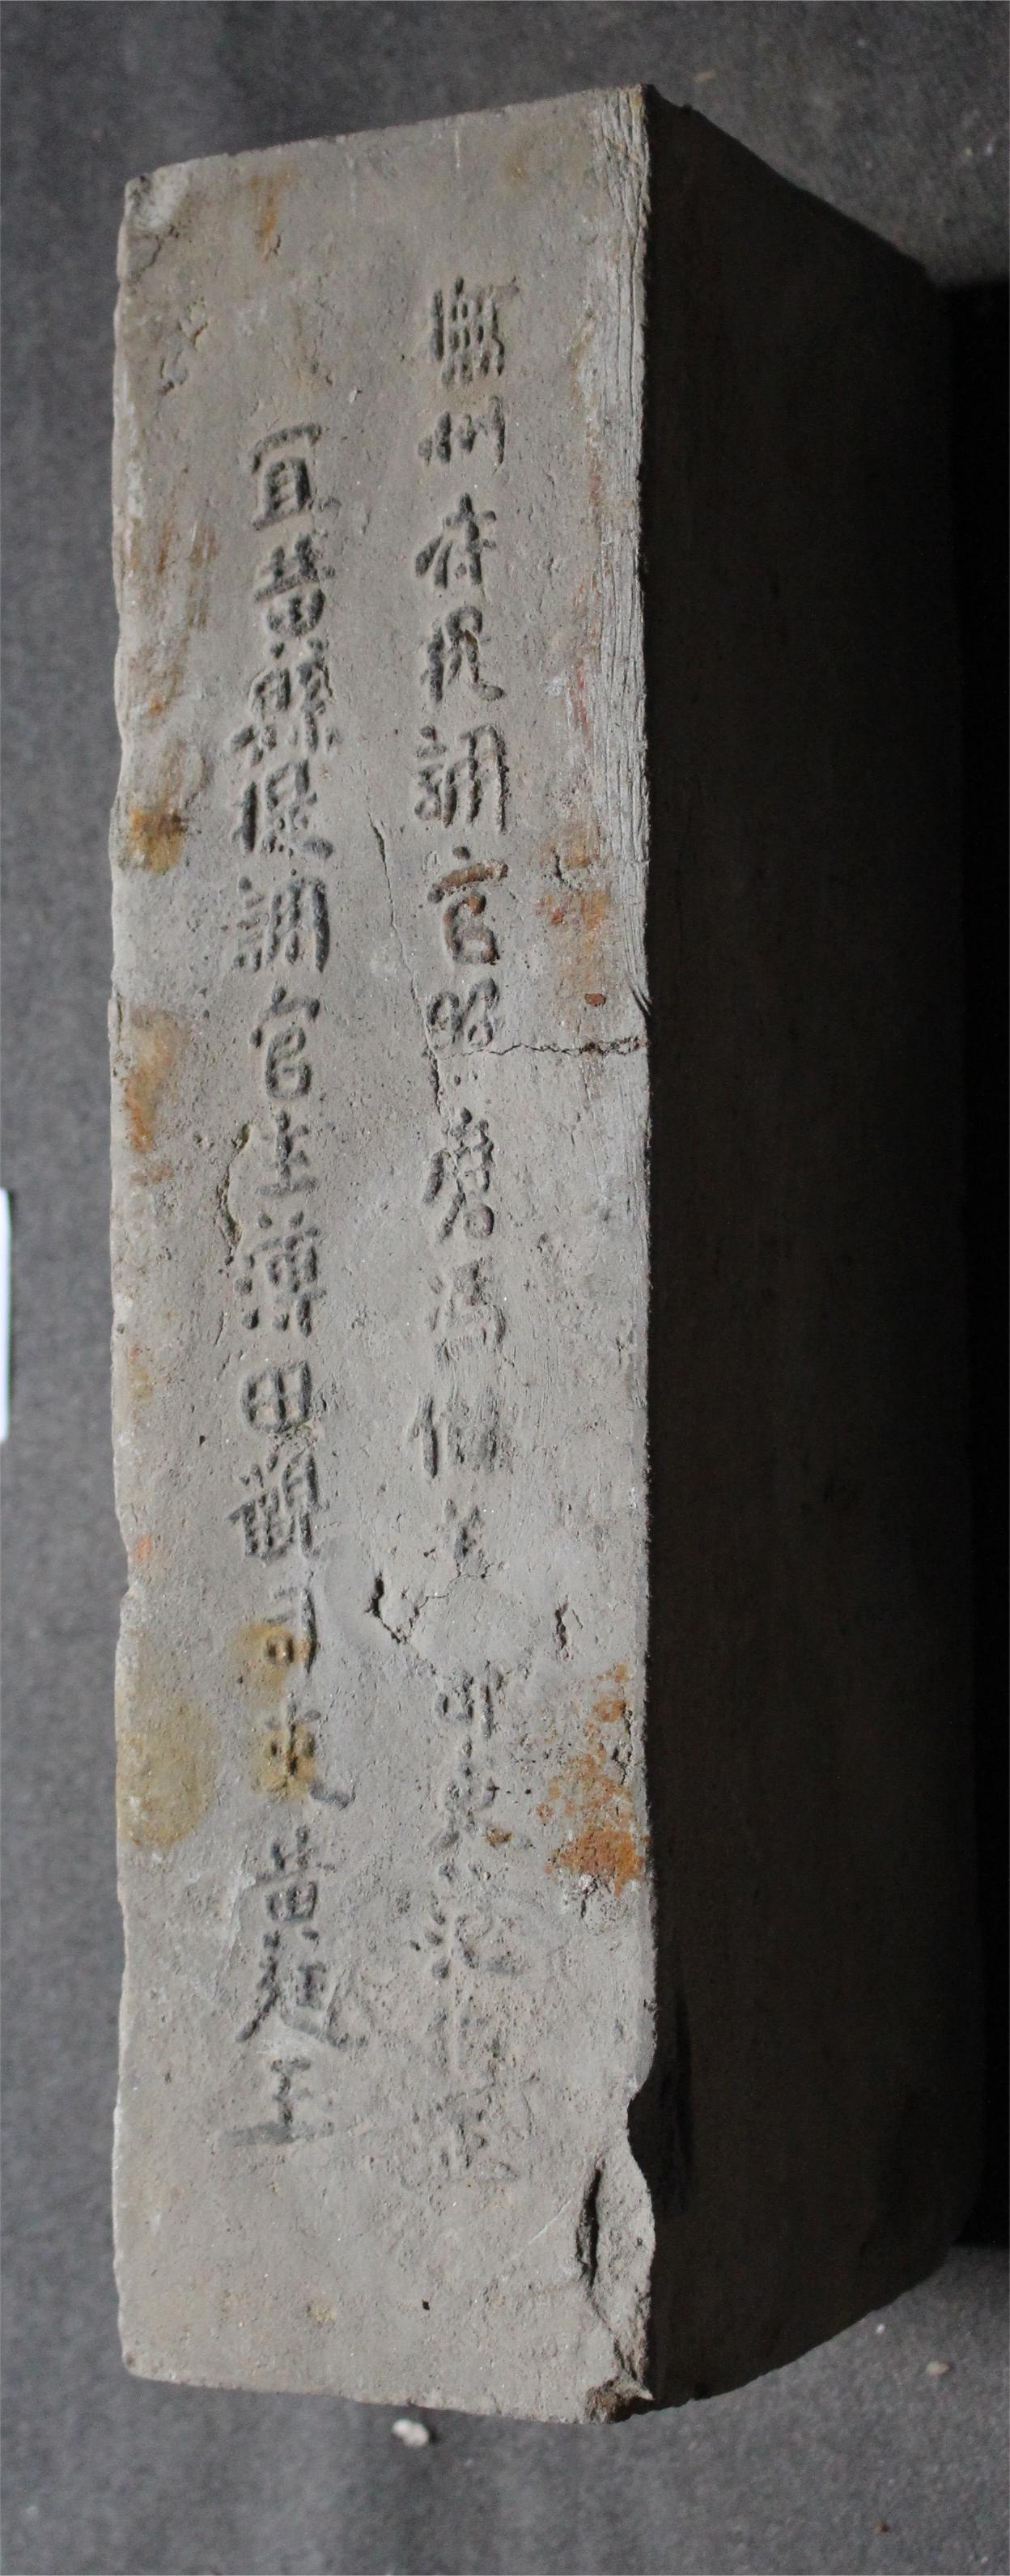 撫州府提調官照磨馮伯司吏
宜黃縣提調官主簿田觀司吏黃廷玉